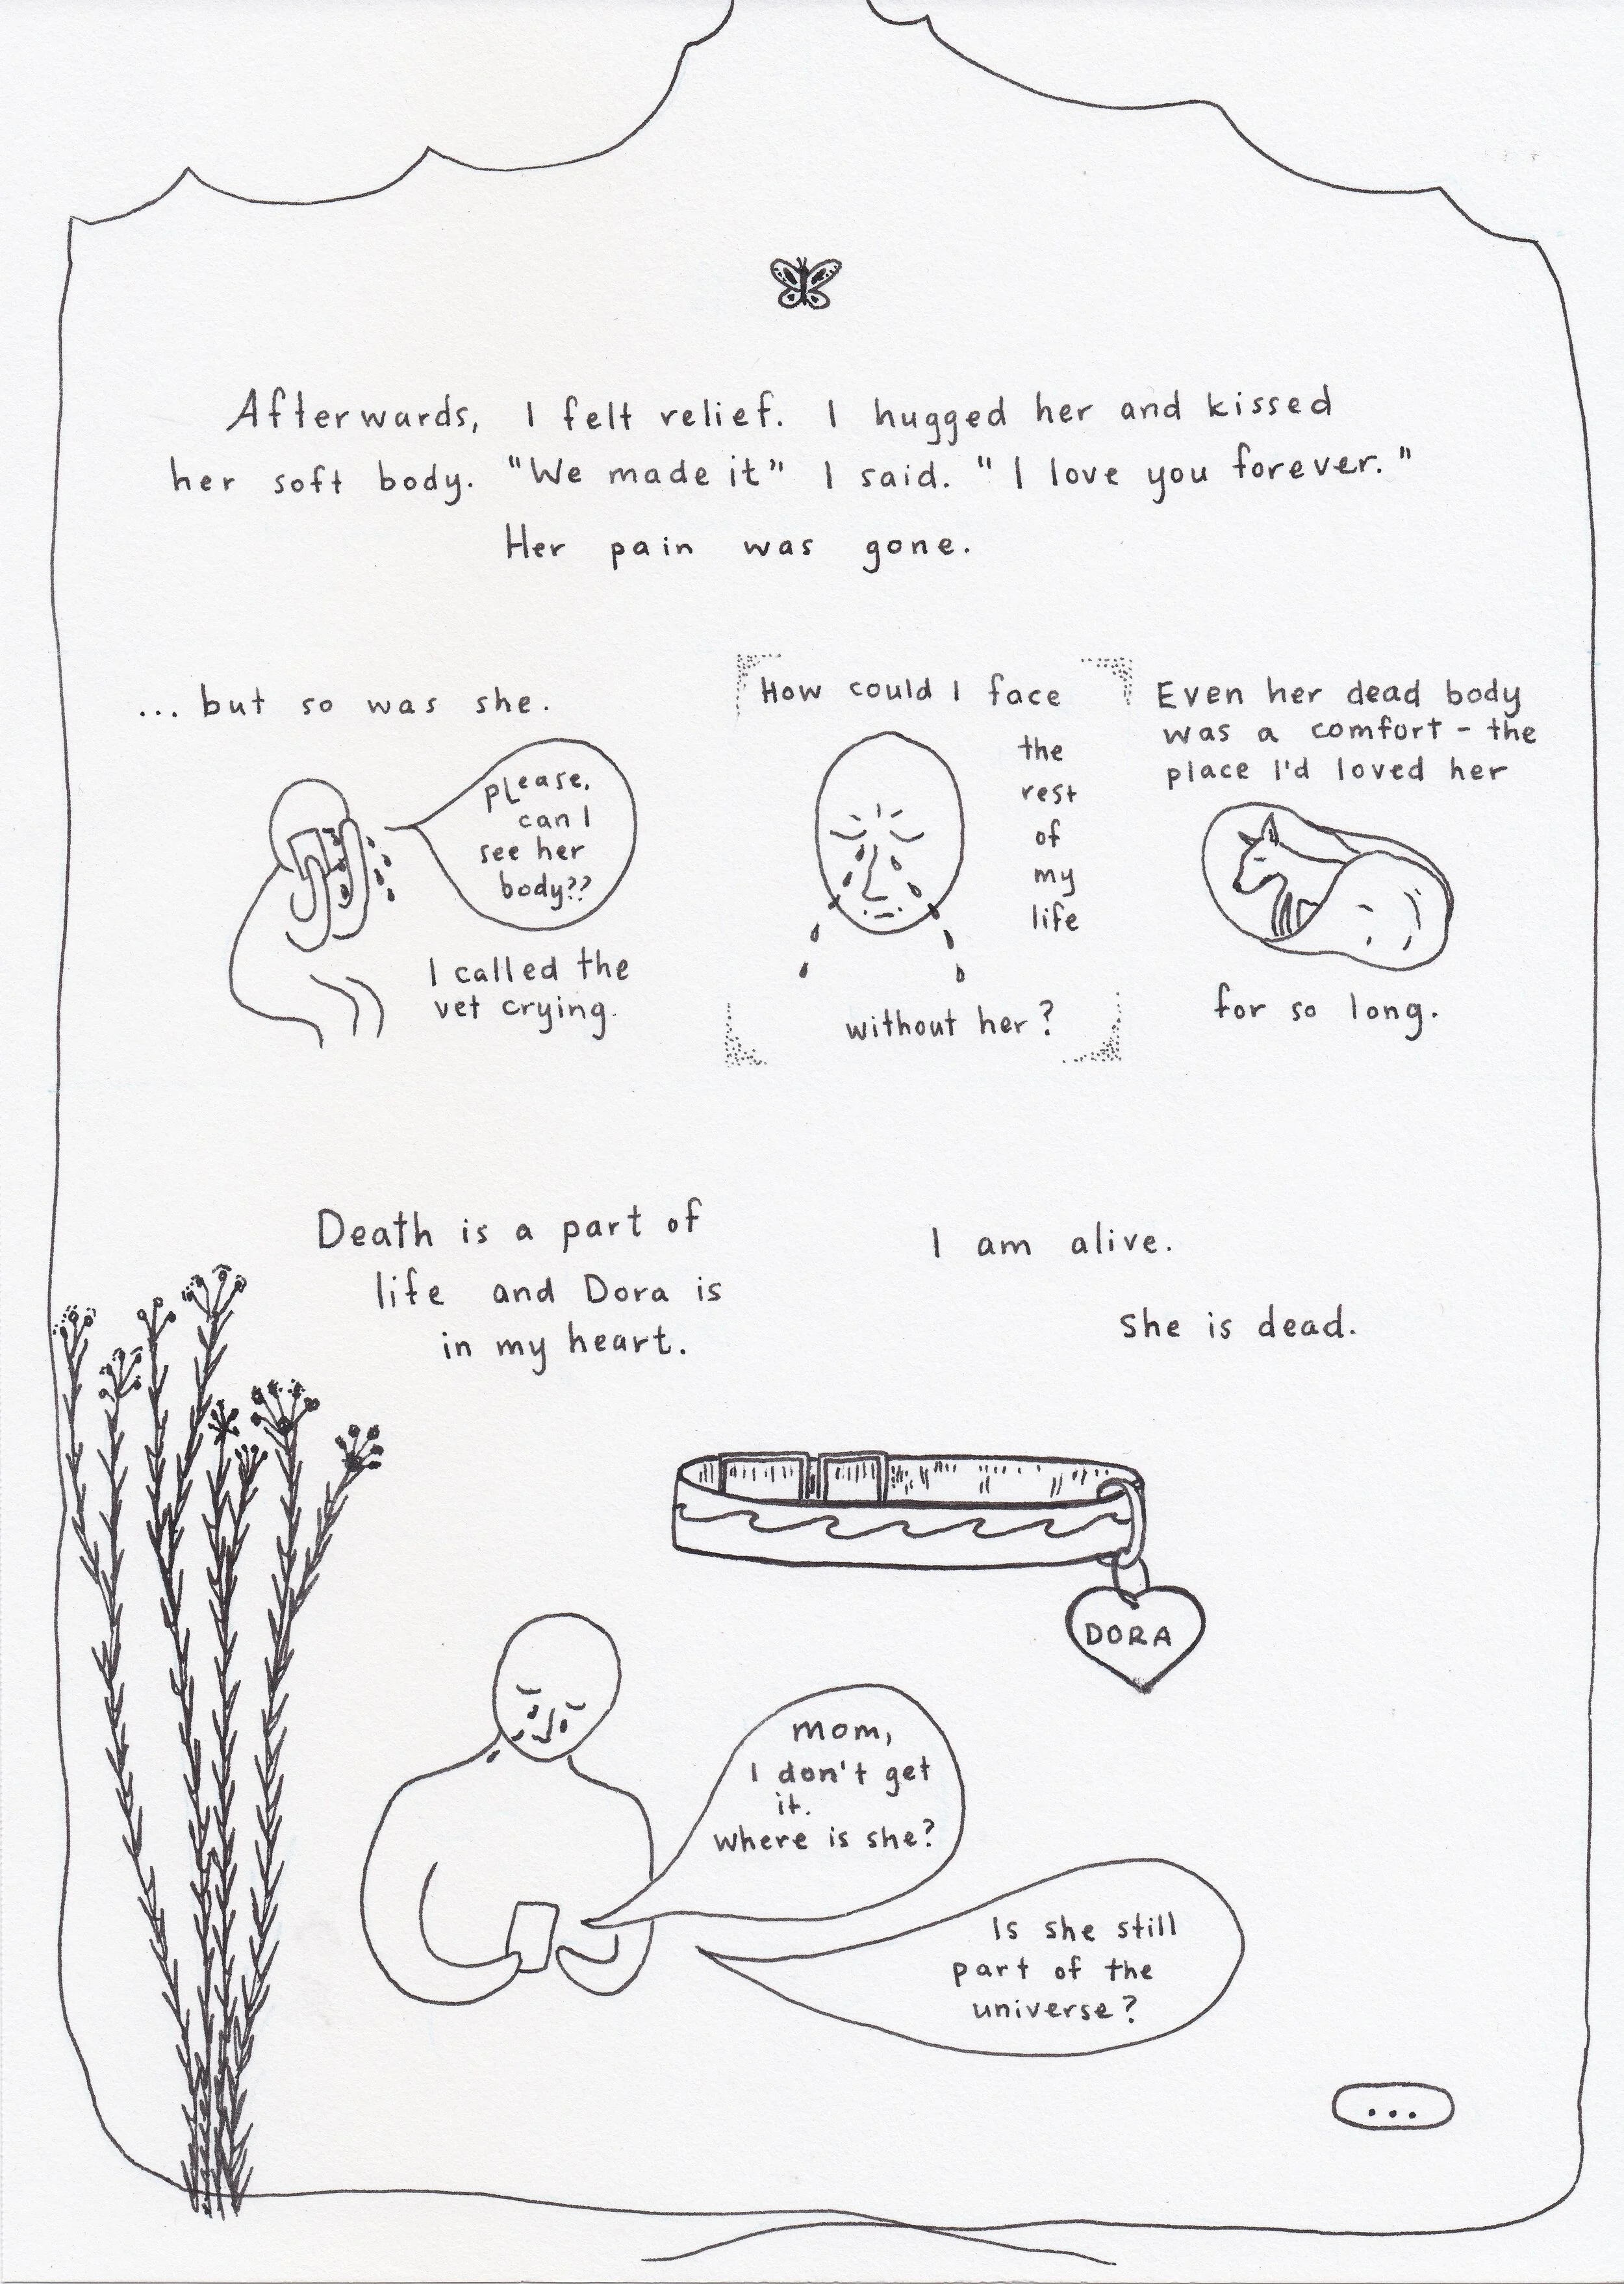 Afterwards, I felt relief. I hugged her and kissed
her soft body. "We made it" I said. "I love you forever."
Her pain was gone.
... but so was she.
please,
can I
see her
body??
I called the
vet crying.
How could I face
the
rest
of
my
life
without her?
Even her dead body
was a comfort - the
place I'd loved her
for so long.
Death is a part of
life and Dora is
in my heart.
I am alive.
She is dead.
DORA
Mom,
I don't get
it.
Where is she?
Is she still
part of the
universe?
...